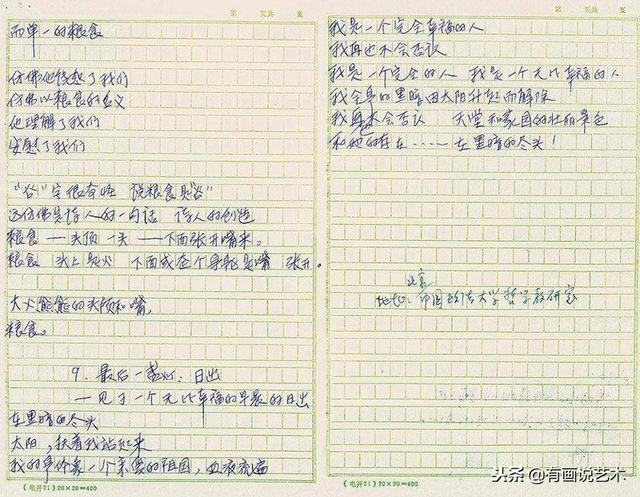 第 页共 页
而单一的粮食
仿佛他饶恕了我们
仿佛以粮食的名义
他理解了我们
安慰了我们
"谷"字很奇怪 说粮食是"谷"
这仿佛是诗人的一句话 诗人的创造
粮食——头顶一头——下面张开嘴来。
粮食 头上是火 下面或整个身躯是嘴 张开。
大火熊熊的头颅和嘴,
粮食。
9. 最后一盏灯:日出
——见于一个无比幸福的早晨的日出
在黑暗的尽头
太阳,扶着我站起来
我的身体像一个亲爱的祖国,血液流遍
(电开21)20×20=400
第 页共 页
我是一个完全幸福的人
我再也不会否认
我是一个完全的人 我是一个无比幸福的人
我全身的黑暗因太阳升起而解除
我再也不会否认 天堂和家园的壮丽景色
和她的存在……在黑暗的尽头!
北京
地址:中国政法大学哲学教研室
(电开21)20×20=400
头条 @有画说艺术